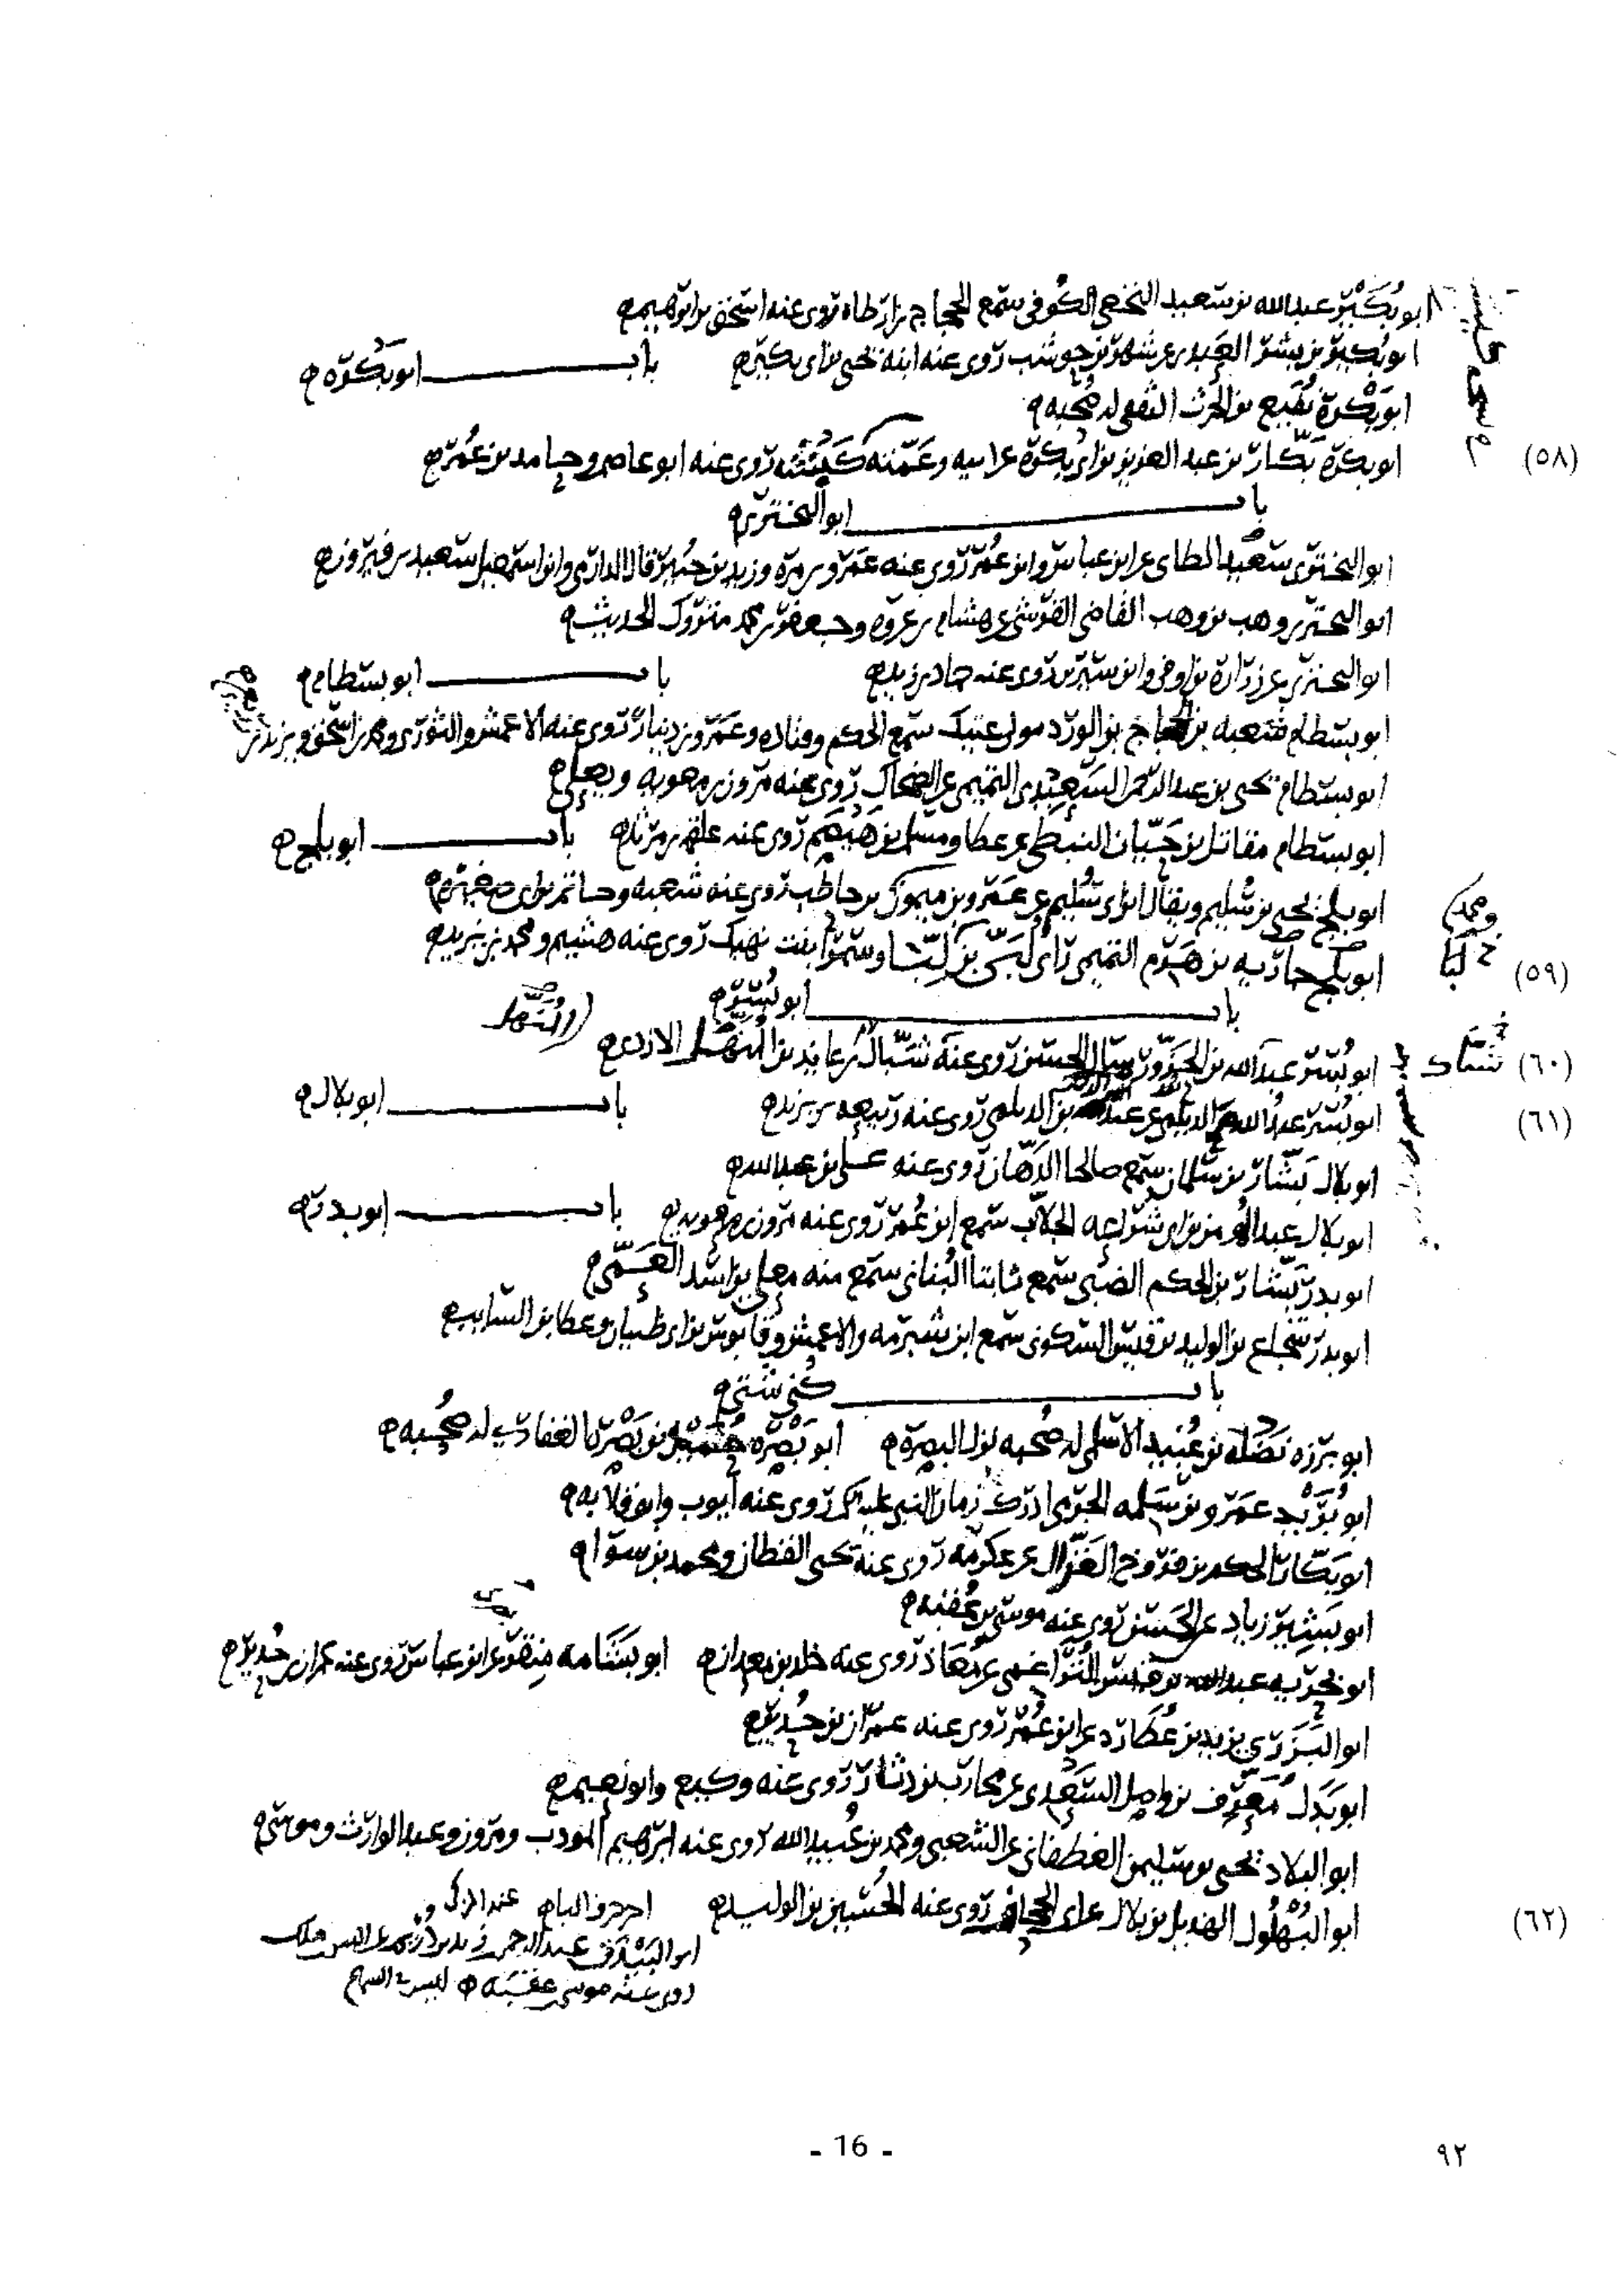 ابو بُكَيْر عبد الله بن سعيد النخعي الكُوفي سمع الحجاج بن ارطاه روى عنه اسحق بن ابرهيم ه
ابو بُكير بن بشر العبدي عن شهر بن حوشب روى عنه ابنه يحيى بن ابي بكير ه باب ابو بكره ه
ابو بَكْرة نُفَيع بن الحرث الثقفي له صُحبه ه
(٥٨) ابو بكرة بكّار بن عبد العزيز بن ابي بكرة عن ابيه وعَمّته كَيّسَه روى عنه ابو عاصم وحامد بن عُمَر ه
باب ابو البختري ه
ابو البختري سعيد الطاى عن ابن عباس وابن عُمَر روى عنه عَمرو بن مره وزيد بن جُبير قال الدارمي وابو اسمعيل سعيد بن فيروز ه
ابو البختري وهب بن وهب القاضي القرشي عن هشام بن عروه وجعفر بن محمد متروك الحديث ه
ابو البختري عن زرارة بن اوفى وابن سيرين روى عنه حماد بن زيد ه باب ابو بسطام ه
ابو بسطام شعبه بن الحجاج بن الورد مولى عتيك سمع الحكم وقتاده وعَمرو بن دينار روى عنه الاعمش والثوري ومحمد بن اسحق ويزيد بن
ابو بسطام يحيى بن عبد الرحمن السعيدى التميمي عن الضحاك روى عنه مروان بن معويه ويعلى ه
ابو بسطام مقاتل بن حَيّان النبطي عن عطا ومسلم بن هَيْصَم روى عنه علقمه بن مرثد ه باب ابو بلج ه
ابو بلج يحيى بن سُليم ويقال ابن ابي سُليم عن عَمرو بن ميمون بن حاطب روى عنه شعبه وحاتم بن ابي صغيره ه
ومحمد
(٥٩) ابو بلج جاريه بن هَرِم التميمي راى لُبَىّ بن لَبَا وسَمُرة بنت نهيك روى عنه هشيم ومحمد بن يزيد ه
لَبَا
باب ابو بُسْر ه
المُنَخَّل
(٦٠) ابو بُسْر عبد الله بن سال الحسن روى عنه بن عايذ بن المُنَخَّل الازدي ه
(٦١) ابو بُسْر عبد الله الديلمي عن بن الديلمي روى عنه ربيعه بن يزيد ه باب ابو بلال ه
ابو بلال بشّار بن سلمان سمع صالحا الدهّان روى عنه على بن عبد الله ه
ابو بلال عبد المومن بن ابي شراعه الجلّاب سمع ابن عُمَر روى عنه مروان بن معويه ه باب ابو بدر ه
ابو بدر بشّار بن الحكم الضبّي سمع ثابتا البُناني سمع منه معلى بن اسد العَمّي ه
ابو بدر شجاع بن الوليد بن قيس السكوني سمع ابن شبرمه والاعمش وقابوس بن ابي ظبيان وعطا بن السايب ه
باب كُنى شتى ه
ابو برزه نَضْلَه بن عُبَيد الاسلمي له صُحبه نزل البصرة ه ابو بَصْرَه حُمَيْل بن بَصْرة الغفاري له صُحبه ه
ابو بُرَيْد عَمرو بن سَلِمه الجَرمي ادرك زمان النبي عليه السلم روى عنه ايوب وابو قلابه ه
ابو بكّار الحكم بن فرّوخ الغَزّال عن عكرمه روى عنه يحيى القطان ومحمد بن سوا ه
ابو بَشِير زياد عن الحَسَن روى عنه موسى بن عُقبه ه
ابو بحريه عبد الله بن قيس التُرَاغمي عن مُعاذ روى عنه خلد بن معدان ه ابو بَشَامه مِنقَر عن ابن عباس روى عنه عمران بن حُدير ه
ابو البَزَرى يزيد بن عُطارد عن ابن عُمَر روى عنه عمران بن حُدير ه
ابو بَدَل مُعَرِّف بن واصل السَعْدى عن محارب بن دثار روى عنه وكيع وابو نعيم ه
ابو البلاد يحيى بن سليمن الغطفاني عن الشعبي ومحمد بن عُبيد الله روى عنه ابرهيم المودب ومروان وعبد الوارث وموسى ه
(٦٢) ابو البُهْلُول الهذيل بن بلال روى عنه الحُسَين بن الوليد ه اخر حرف الباء
ابو البَيْلَق عبد الرحمن بن انس بن ملك
روى عنه موسى بن عقبه ه ليس في السماع
- 16 -
٩٢